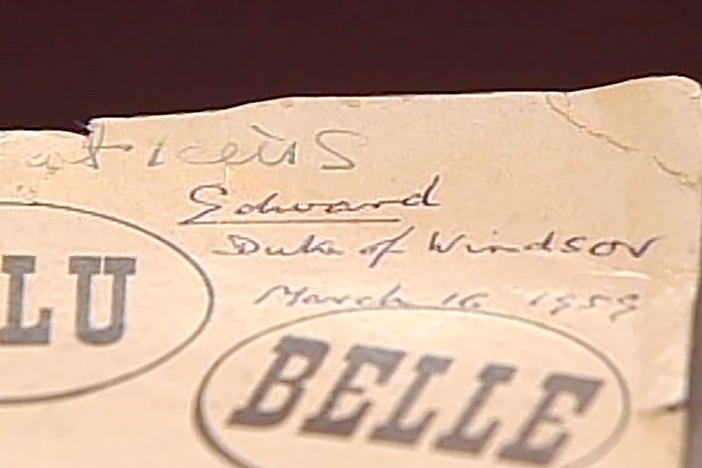 Edward
Duke of Windsor
March 16 1959
LU
BELLE